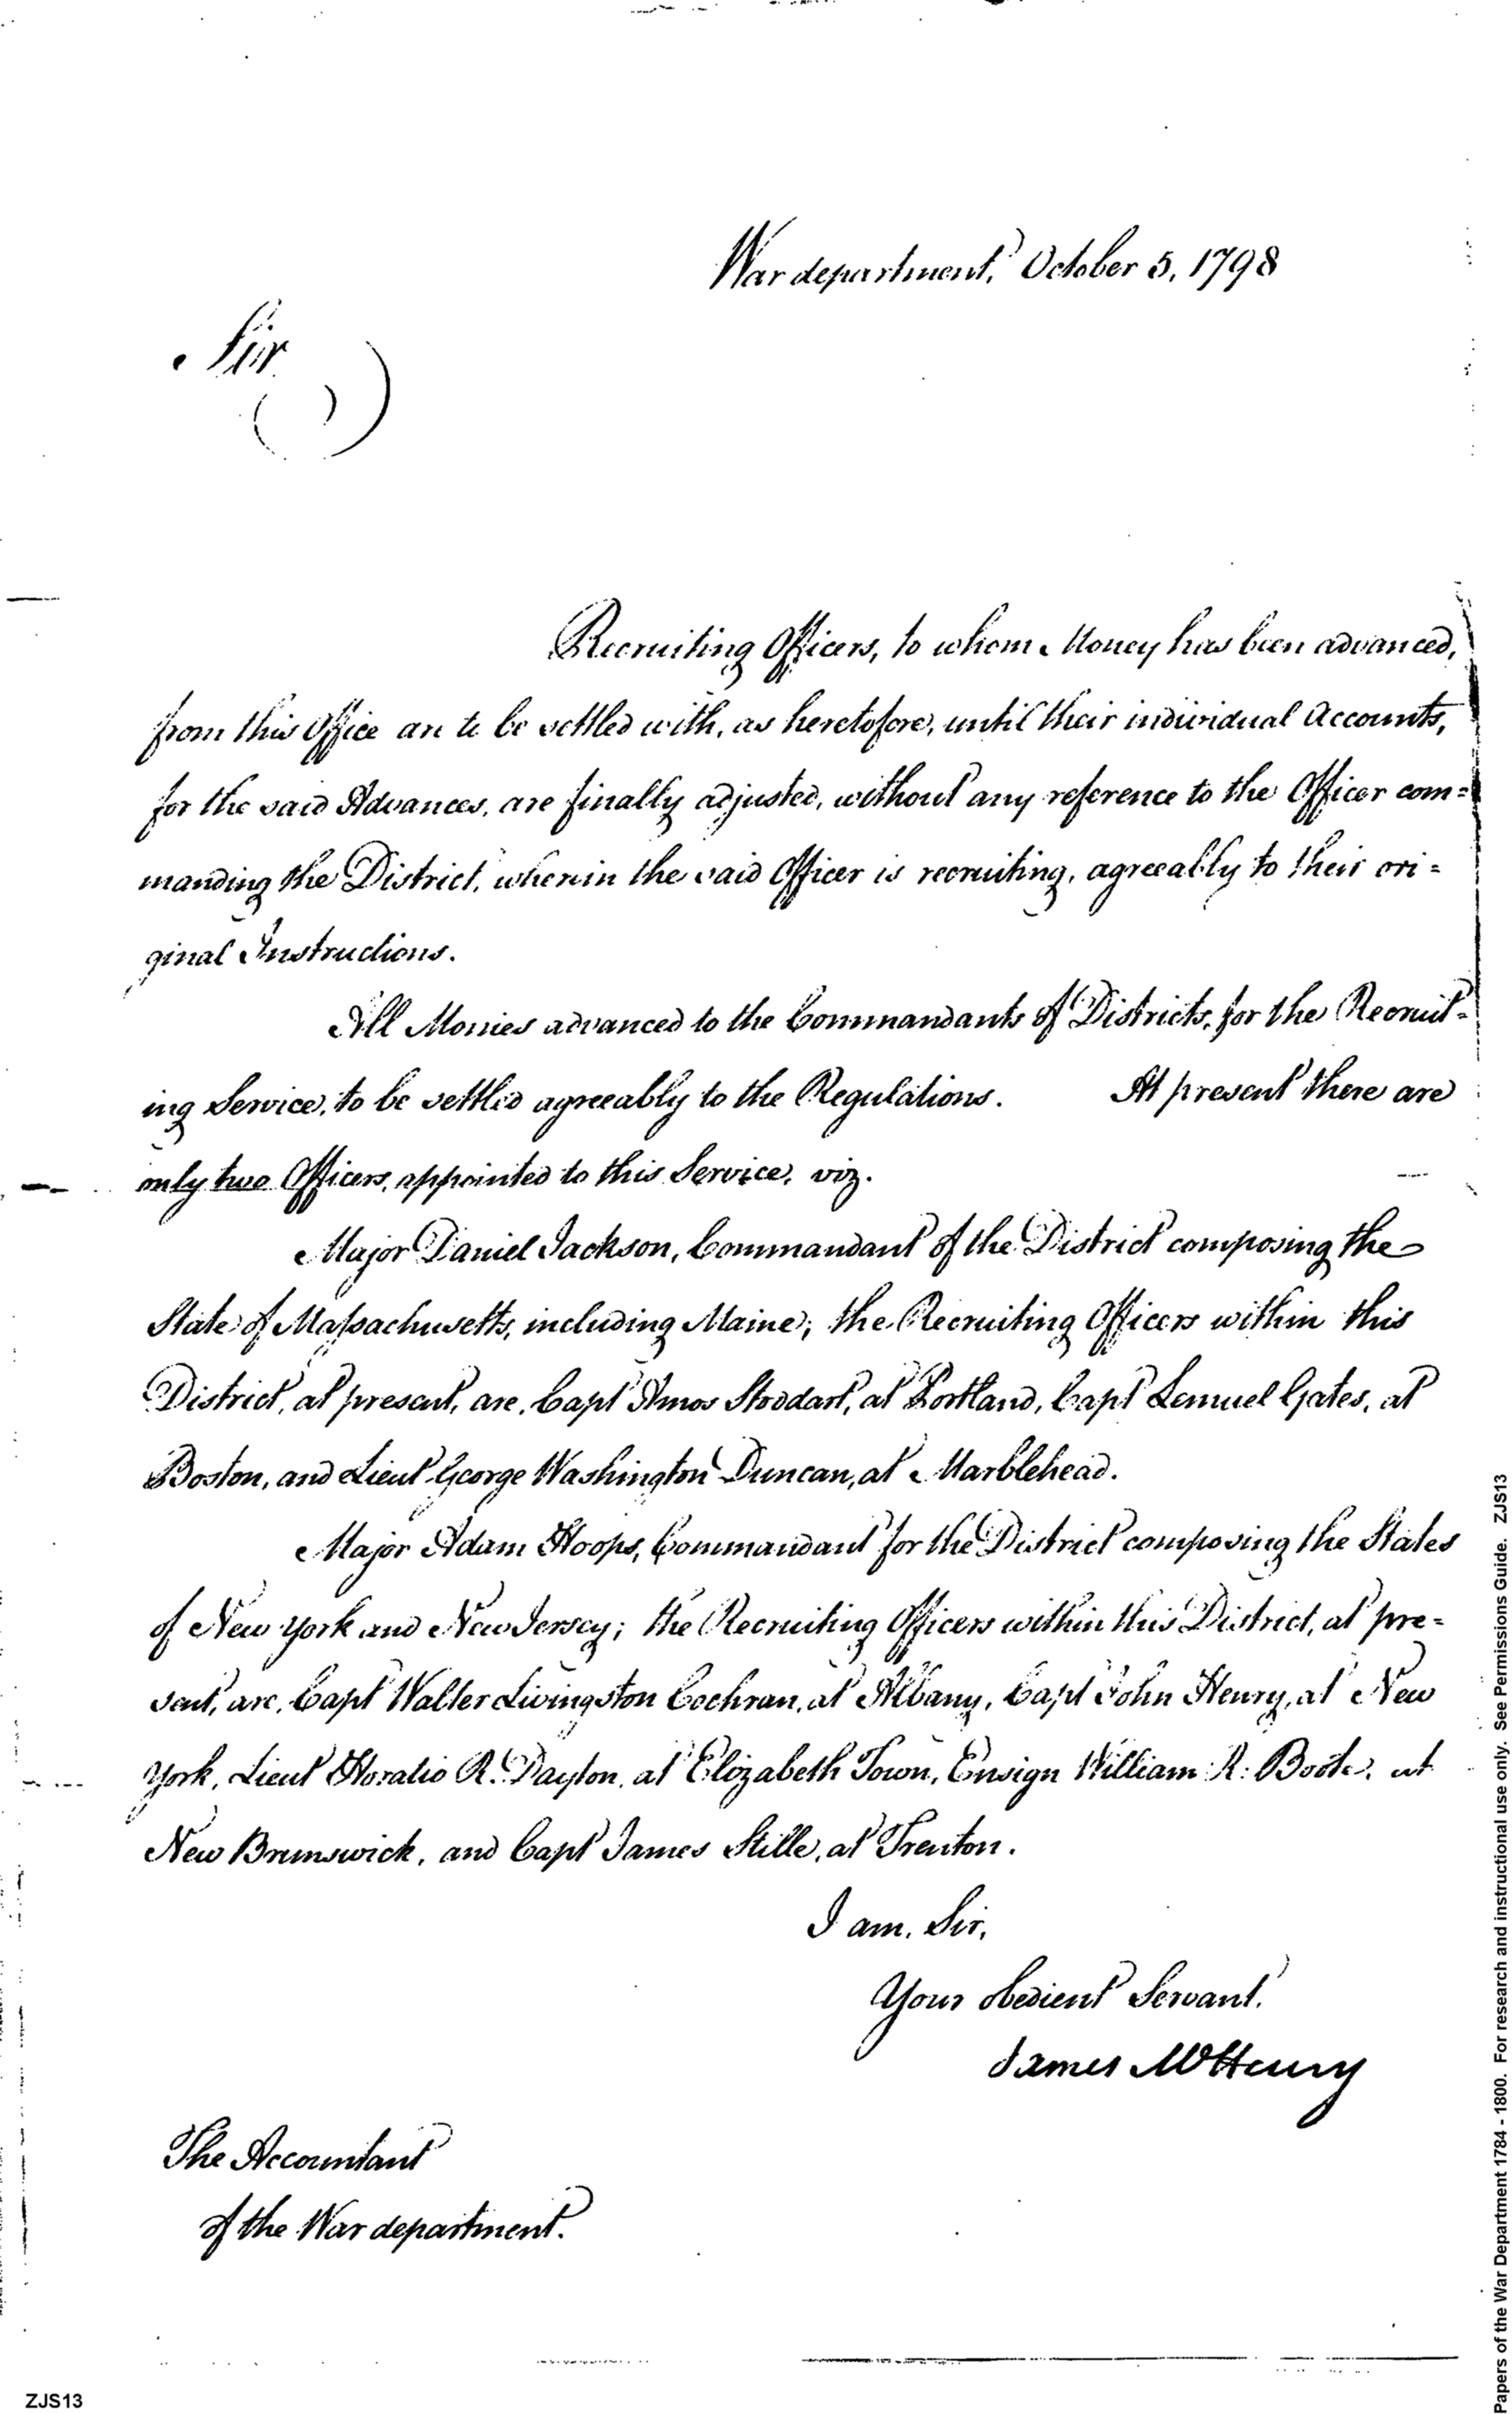 War department, October 5, 1798
Sir
Recruiting Officers, to whom Money has been advanced,
from this Office are to be settled with, as heretofore, until their individual Accounts,
for the said Advances, are finally adjusted, without any reference to the Officer com=
manding the District, wherein the said Officer is recruiting, agreeably to their ori=
ginal Instructions.
All Monies advanced to the Commandants of Districts, for the Recruit-
ing Service, to be settled agreeably to the Regulations. At present there are
only two Officers, appointed to this Service, viz.
Major Daniel Jackson, Commandant of the District composing the
State of Massachusetts, including Maine; the Recruiting Officers within this
District, at present, are, Capt Amos Stoddart, at Portland, Capt Lemuel Gates, at
Boston, and Lieut George Washington Duncan, at Marblehead.
Major Adam Hoops, Commandant for the District composing the States
of New York and New Jersey; the Recruiting Officers within this District, at pre=
sent, are, Capt Walter Livingston Cochran, at Albany, Capt John Henry, at New
York, Lieut Horatio R. Dayton, at Elizabeth Town, Ensign William R. Boote, at
New Brunswick, and Capt James Stille, at Trenton.
I am, Sir,
Your obedient Servant.
James McHenry
The Accountant
of the War department.
ZJS13
Papers of the War Department 1784 - 1800. For research and instructional use only. See Permissions Guide. ZJS13